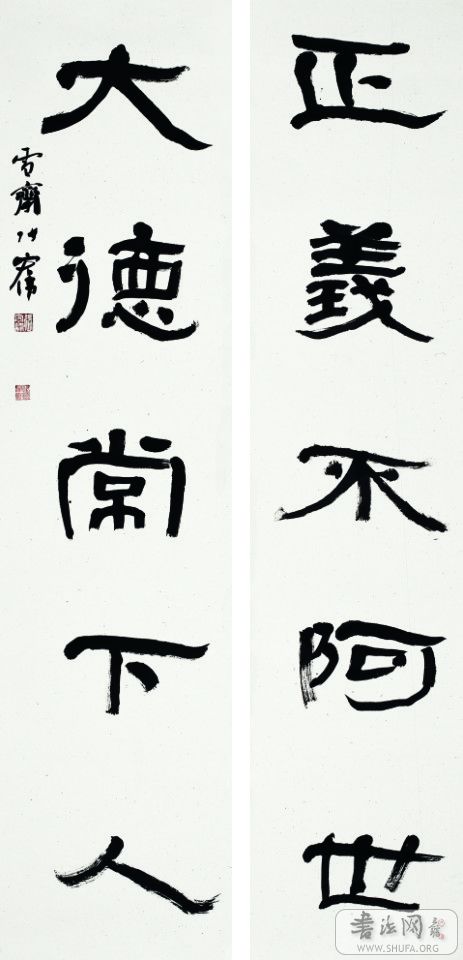 正義不阿世
大德常下人
雪齋
書法网
WWW.SHUFA.ORG